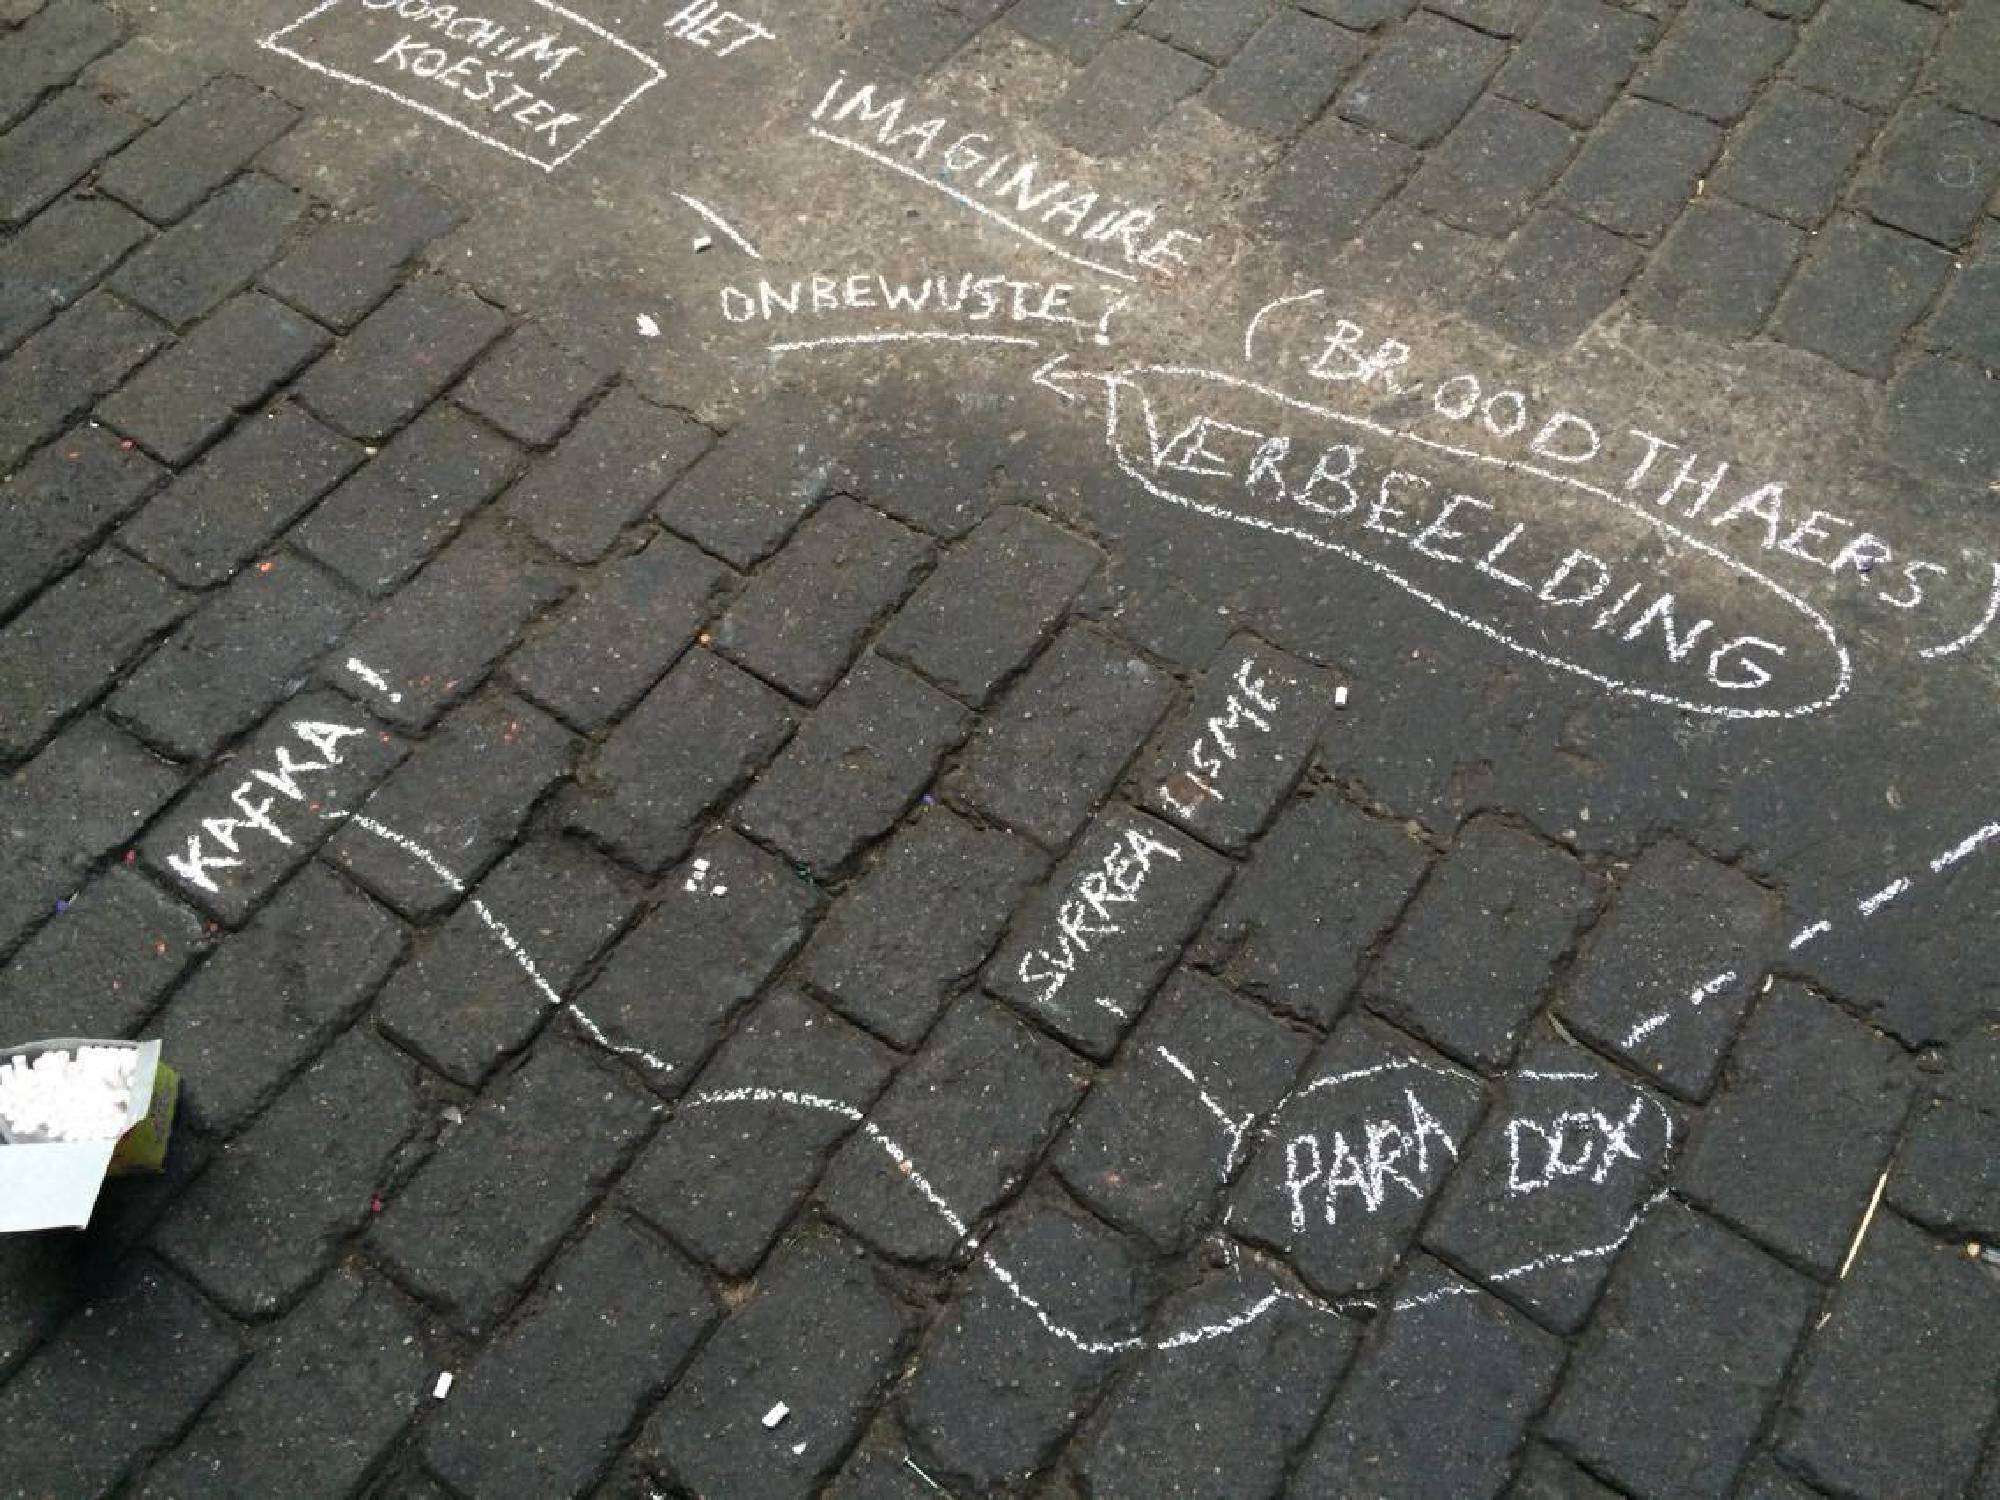 JOACHIM
KOESTER
HET
IMAGINAIRE
ONBEWUSTE?
(BROODTHAERS)
VERBEELDING
KAFKA!
SURREALISME
PARADOX